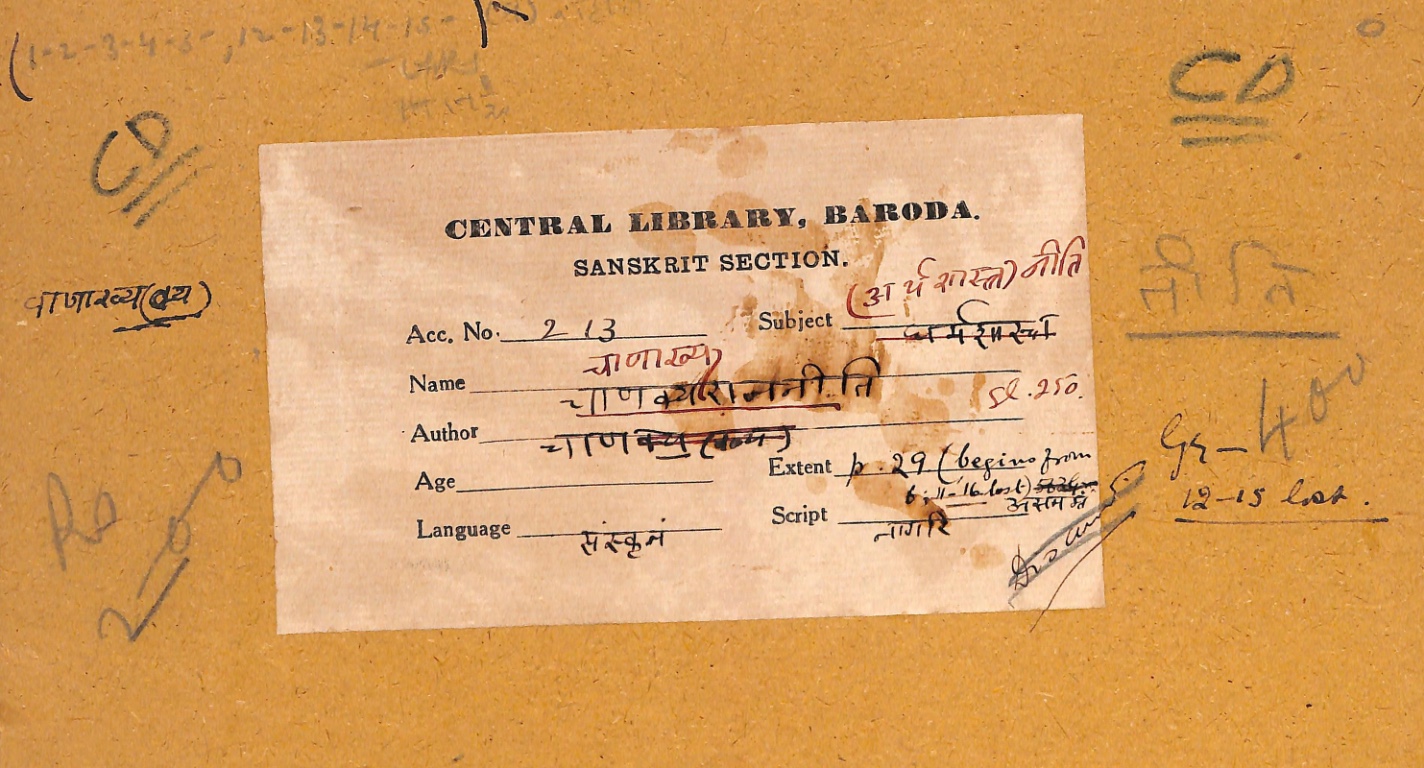 (1-2-3-4-5-, 12-13-14-15-
CD
CD
CENTRAL LIBRARY, BARODA.
SANSKRIT SECTION.
(अर्थशास्त्र) नीति
Acc. No. 213
Subject धर्मशास्त्र
नीति
चाणाख्य
Name चाणक्यराजनीति
Sl. 250.
Author चाणक्य
Extent p. 29 (begins from
6, 11-16 lost)
असमग्रं
Age
Language संस्कृतं
Script नागरि
चाणाख्य (क्य)
400
12-15 lost.